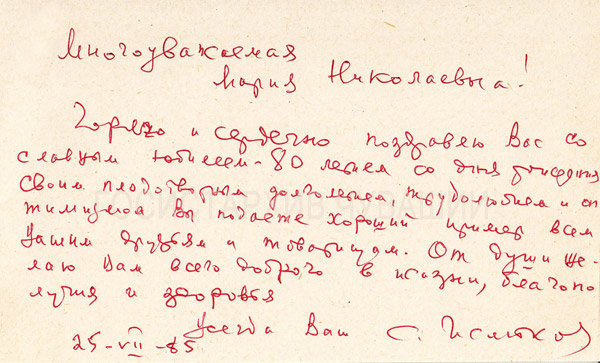 Многоуважаемая
Мария Николаевна!
Горячо и сердечно поздравляю Вас со
славным юбилеем - 80 летием со дня рождения
Своим плодотворным долголетием, трудолюбием и оп
тимизмом Вы подаете хороший пример всем
Вашим друзьям и товарищам. От души же-
лаю Вам всего доброго в жизни, благопо
лучия и здоровья
Всегда Ваш С.
25-VII-85